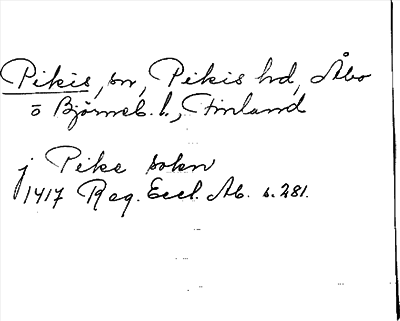 Pikis, sn, Pikis hd, Åbo
o Björneb. l., Finland
j Pike sokn
1417 Reg. Eccl. Ab. s. 281.